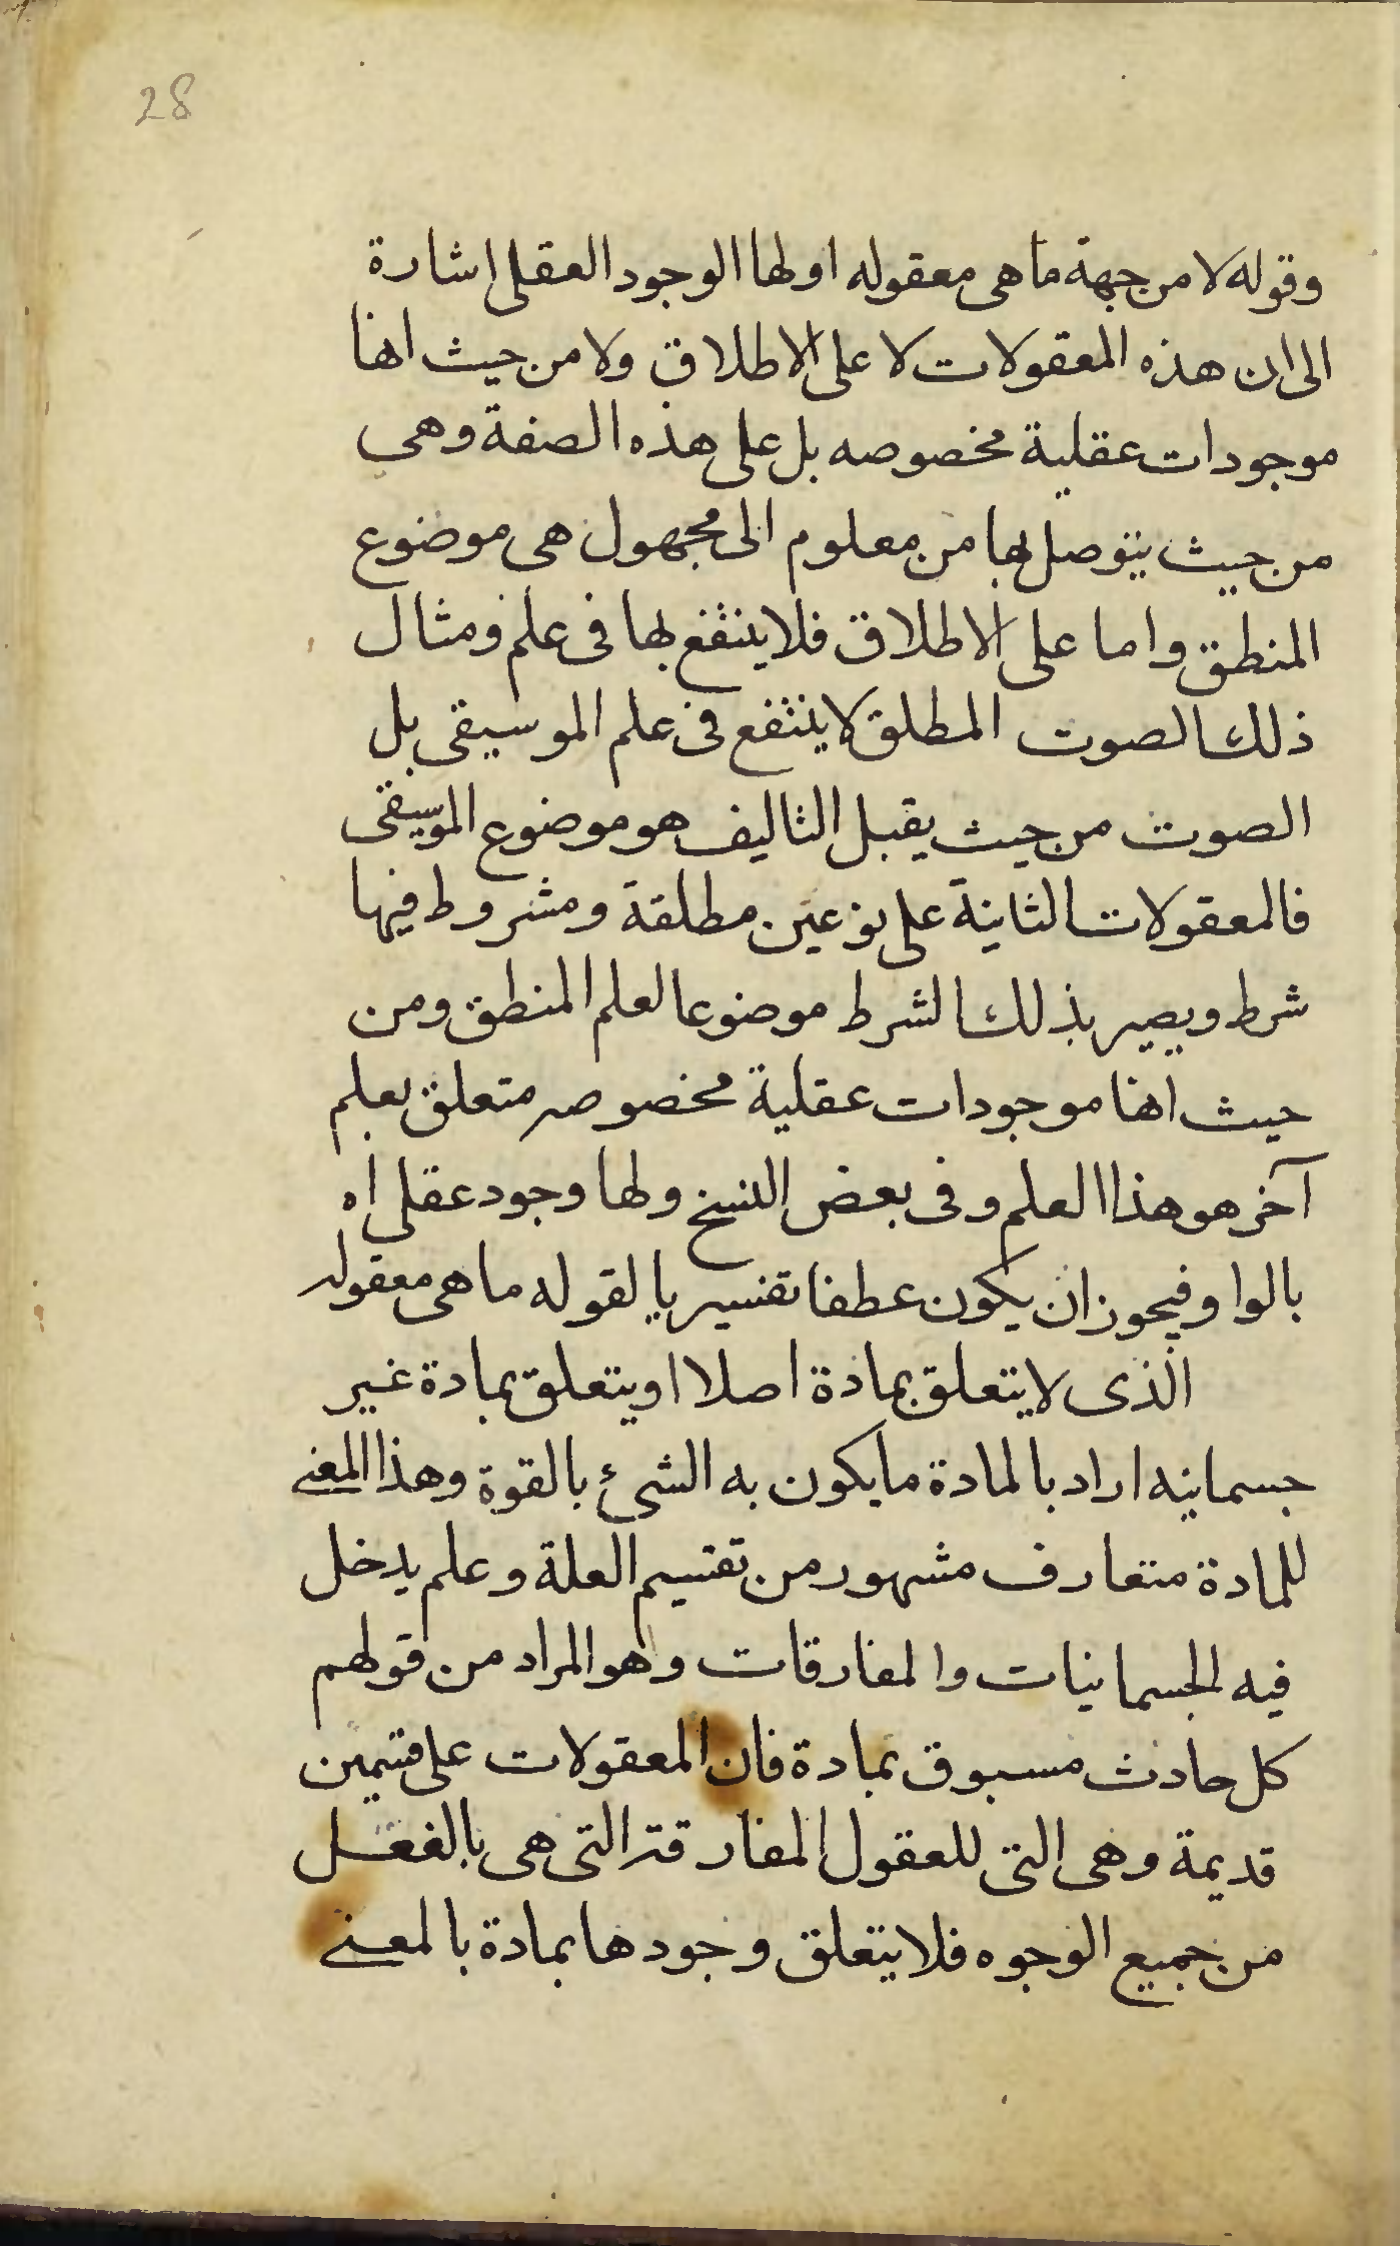 28
وقوله لا من جهة ما هى معقوله اولها الوجود العقلى اشارة
الى ان هذه المعقولات لا على الاطلاق ولا من حيث انها
موجودات عقلية مخصوصه بل على هذه الصفة وهى
من حيث يتوصل بها من معلوم الى مجهول هى موضوع
المنطق واما على الاطلاق فلا ينتفع بها فى علم ومثال
ذلك الصوت المطلق لا ينتفع فى علم الموسيقى بل
الصوت من حيث يقبل التاليف هو موضوع الموسيقى
فالمعقولات الثانية على نوعين مطلقة ومشروط فيها
شرط ويصير بذلك الشرط موضوعا لعلم المنطق ومن
حيث انها موجودات عقلية مخصوصه متعلق بعلم
آخر هو هذا العلم وفى بعض النسخ ولها وجود عقلى اه
بالواو فيجوز ان يكون عطفا تفسيريا لقوله ما هى معقوله
الذى لا يتعلق بمادة اصلا او يتعلق بمادة غير
جسمانيه اراد بالمادة ما يكون به الشئ بالقوة وهذا المعنى
للمادة متعارف مشهور من تقسيم العلة وعلم يدخل
فيه الجسمانيات والمفارقات وهو المراد من قولهم
كل حادث مسبوق بمادة فان المعقولات على قسمين
قديمة وهى التى للعقول المفارقة التى هى بالفعل
من جميع الوجوه فلا يتعلق وجودها بمادة بالمعنى